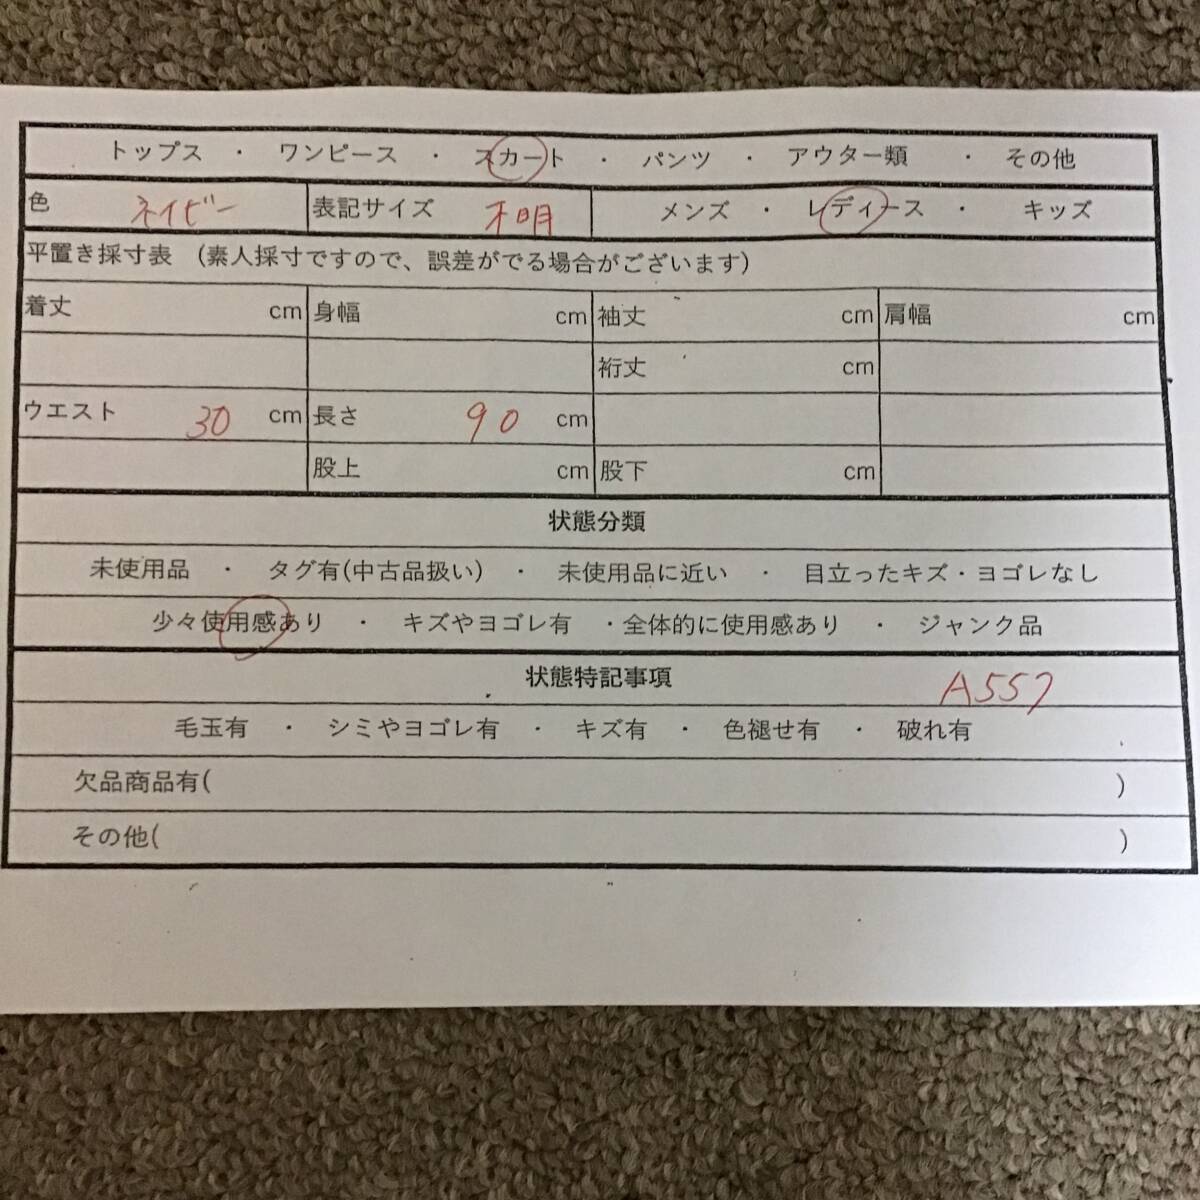 トップス ・ ワンピース ・ スカート ・ パンツ ・ アウター類 ・ その他
色 ネイビー 表記サイズ 不明 メンズ ・ レディース ・ キッズ
平置き採寸表 (素人採寸ですので、誤差がでる場合がございます)
着丈 cm 身幅 cm 袖丈 cm 肩幅 cm
裄丈 cm
ウエスト 30 cm 長さ 90 cm
股上 cm 股下 cm
状態分類
未使用品 ・ タグ有(中古品扱い) ・ 未使用品に近い ・ 目立ったキズ・ヨゴレなし
少々使用感あり ・ キズやヨゴレ有 ・全体的に使用感あり ・ ジャンク品
状態特記事項 A557
毛玉有 ・ シミやヨゴレ有 ・ キズ有 ・ 色褪せ有 ・ 破れ有
欠品商品有( )
その他( )